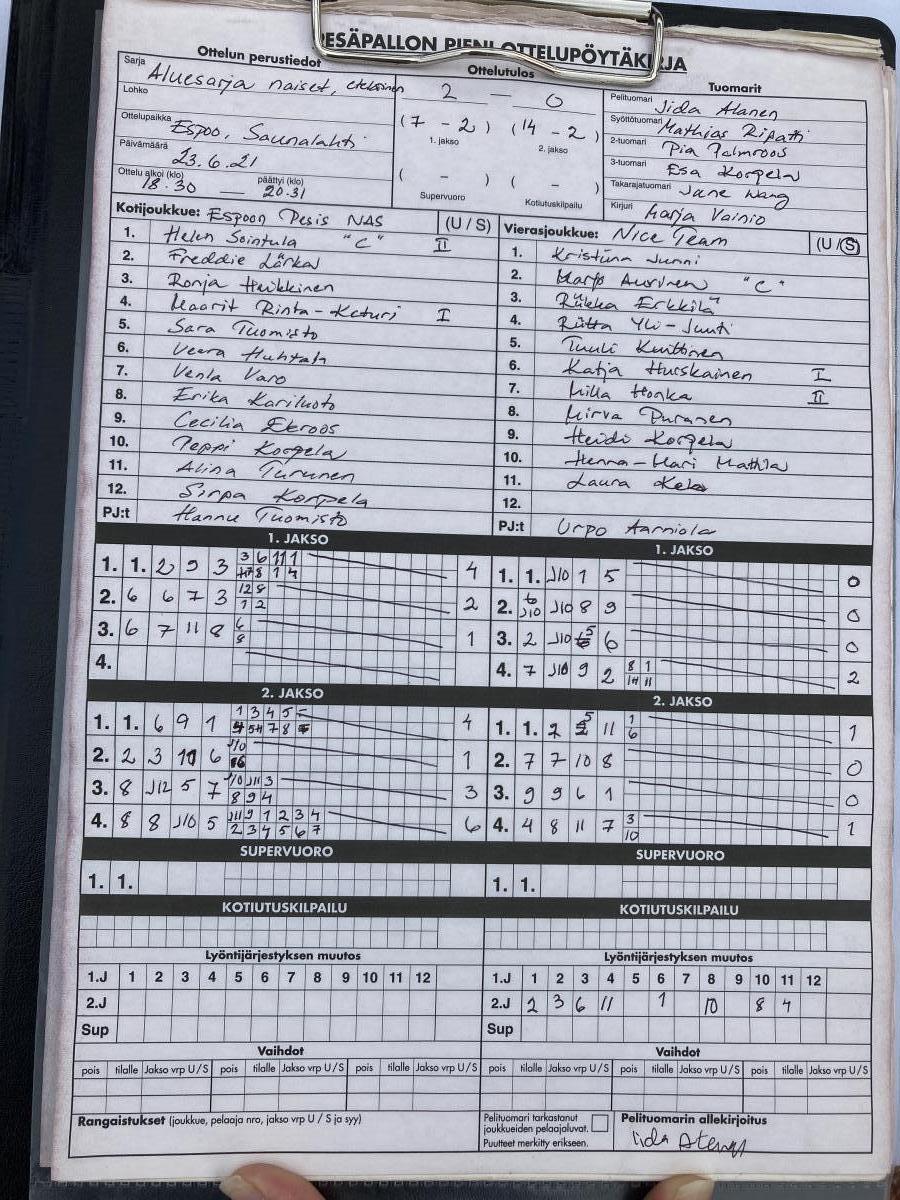 ESÄPALLON PIENI OTTELUPÖYTÄKIRJA
Ottelun perustiedot
Ottelutulos
Tuomarit
Sarja Aluesarja naiset, eteläinen
Lohko
Ottelupaikka Espoo, Saunalahti
Päivämäärä 23.6.21
Ottelu alkoi (klo) 18.30 — päättyi (klo) 20.31
2 — 0
(7 - 2) (14 - 2)
1. jakso 2. jakso
( - ) ( - )
Supervuoro Kotiutuskilpailu
Pelituomari Iida Alanen
Syöttötuomari Mathias Ripatti
2-tuomari Pia Palmroos
3-tuomari Esa Korpela
Takarajatuomari Jane Wang
Kirjuri Marja Vainio
Kotijoukkue: Espoon Pesis NAS (U / S)
1. Helen Sointula "C" II
2. Freddie Lärka
3. Ronja Heikkinen
4. Maarit Rinta-Keturi I
5. Sara Tuomisto
6. Veera Huhtala
7. Venla Varo
8. Erika Kariluoto
9. Cecilia Ekroos
10. Peppi Korpela
11. Alina Turunen
12. Sirpa Korpela
PJ:t Hannu Tuomisto
Vierasjoukkue: Nice Team (U / S)
1. Kristiina Junni
2. Marjo Auvinen "C"
3. Riikka Erkkilä
4. Riitta Yli-Juuti
5. Tuuli Knittinen
6. Katja Hurskainen I
7. Milla Honka II
8. Mirva Puranen
9. Heidi Korpela
10. Henna-Mari Mathla
11. Laura
12.
PJ:t Urpo Aarniola
1. JAKSO
1. 1. 2 9 3 3 6 11 1 4
8 1 4
2. 6 6 7 3 12 8 2
1 2
3. 6 7 11 8 6 1
8
4.
1. JAKSO
1. 1. J10 1 5 0
2. 6 J10 J10 8 9 0
3. 2 J10 5 6 0
4. 7 J10 9 2 8 1 2
11
2. JAKSO
1. 1. 6 9 1 1 3 4 5 4
7 8
2. 2 3 6 J10 1
3. 8 J12 5 7 J10 J11 3 3
8 9 4
4. 8 8 J10 5 J11 9 1 2 3 4 6
2 3 4 5 6 7
2. JAKSO
1. 1. 2 5 11 1 1
6
2. 7 7 10 8 0
3. 9 9 6 1 0
4. 4 8 11 7 3 1
10
SUPERVUORO
1. 1.
SUPERVUORO
1. 1.
KOTIUTUSKILPAILU
KOTIUTUSKILPAILU
Lyöntijärjestyksen muutos
1.J 1 2 3 4 5 6 7 8 9 10 11 12
2.J
Sup
Lyöntijärjestyksen muutos
1.J 1 2 3 4 5 6 7 8 9 10 11 12
2.J 2 3 6 11 1 10 8 4
Sup
Vaihdot
pois tilalle Jakso vrp U / S pois tilalle Jakso vrp U / S pois tilalle Jakso vrp U / S
Vaihdot
pois tilalle Jakso vrp U / S pois tilalle Jakso vrp U / S pois tilalle Jakso vrp U / S
Rangaistukset (joukkue, pelaaja nro, jakso vrp U / S ja syy)
Pelituomari tarkastanut
joukkueiden pelaajaluvat.
Puutteet merkitty erikseen.
Pelituomarin allekirjoitus
Iida